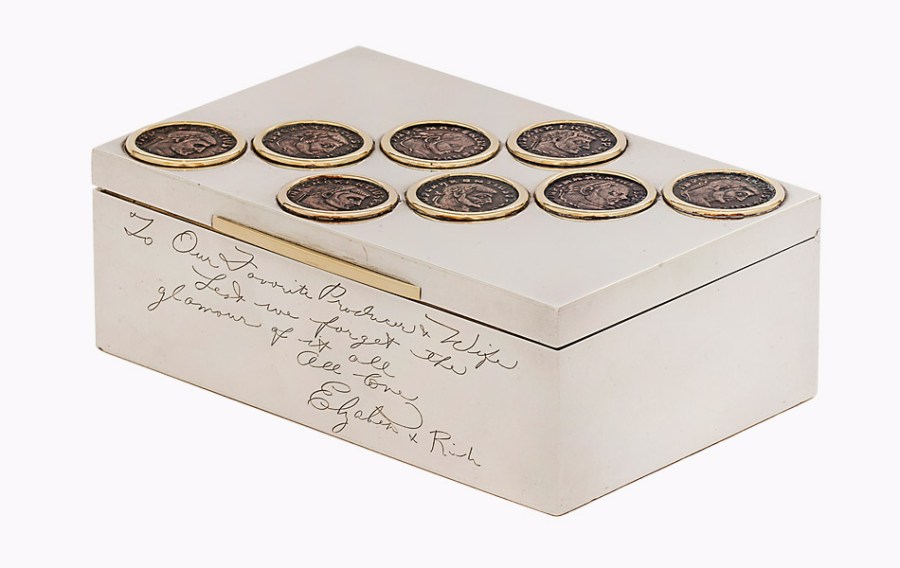 To Our Favorite Producer & Wife
Lest we forget the
glamour of it all
All Love,
Elizabeth & Rich